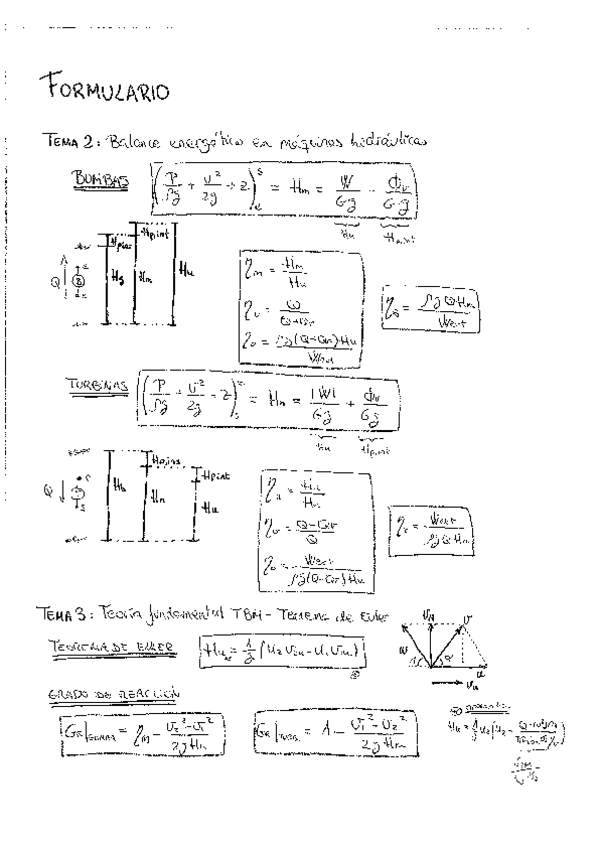 FORMULARIO
TEMA 2: Balance energético en máquinas hidráulicas
BOMBAS (P/ρg + v²/2g + z)ₑˢ = Hm = Ẇ/Gg - Φv/Gg
Hu Hp,int
Hp,int
Hg Hm Hu
Q B
ηm = Hm/Hu
ηv = Q/Q+Qr
ηo = ρg(Q+Qr)Hu/Ẇext
ηt = ρgQHm/Ẇext
TURBINAS (P/ρg + v²/2g + z)ₛᵉ = Hn = |Ẇ|/Gg + Φv/Gg
Hu Hp,int
Hp,int
Hb Hn Hu
Q
Hv
ηv = Q-Qr/Q
ηo = Ẇext/ρg(Q-Qr)Hu
ηt = Ẇext/ρgQHn
TEMA 3: Teoría fundamental TBM - Teorema de Euler
TEOREMA DE EULER Hu = 1/g (u₂vu₂ - u₁vu₁)
w v u vu
GRADO DE REACCIÓN
GR|BOMBA = ηm - v₂²-v₁²/2gHu
GR|TURB. = 1 - v₁²-v₂²/2gHn